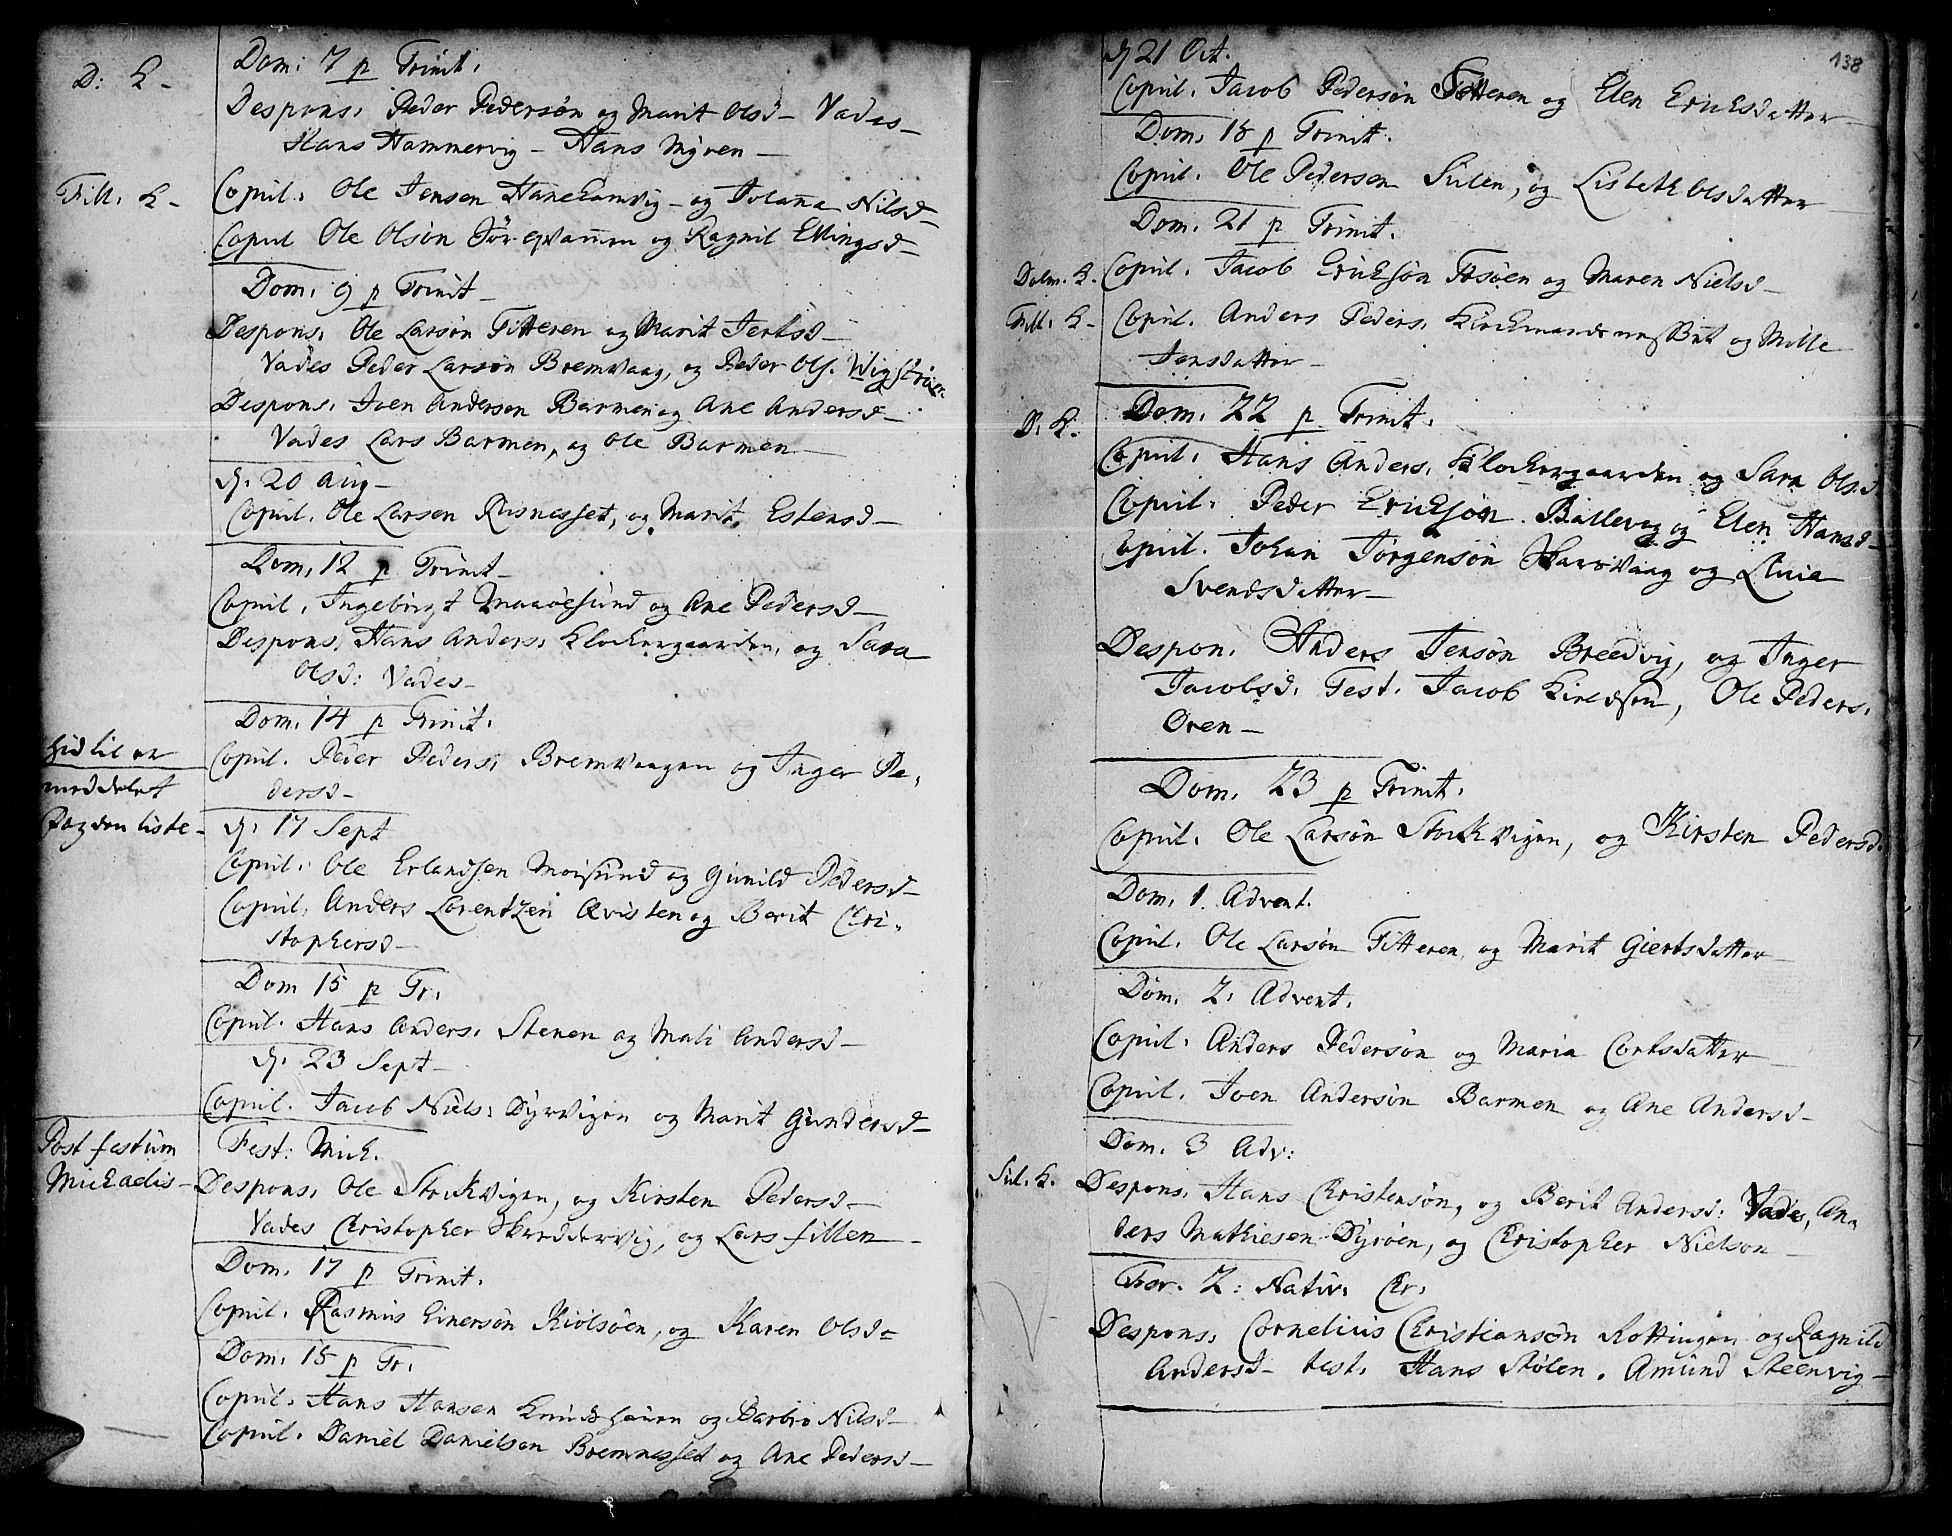 D: K-
Dom: 7 p Trinit.
Despons. Peder Pedersøn og Marit Olsd- Vades-
Hans Hammervig- Hans Myren-
Fill. K-
Copul. Ole Jensen Hanehamvig- og Johaña Nilsd-
Copul Ole Olsøn og Ragnil Ellingsd-
Dom. 9 p Trinit-
Despons. Ole Larsøn Titteren og Marit Jertsd-
Vades Peder Larsøn Bremvaag, og Peder Ols.
Despons. Joen Andersen Barmen og Ane Andersd-
Vades Lars Barmen, og Ole Barmen-
d. 20 Aug-
Copul. Ole Larsen Risnesset, og Marit Estensd-
Dom. 12 p Trinit-
Copul. Ingebrigt Maaøesund og Ane Pedersd-
Despons. Hans Anders. Klockergaarden, og Sara
Olsd: Vades-
Dom. 14 p Trinit.
hid til er
Copul. Peder Peders. Bremvaagen og Inger Pe-
meddelet
dersd-
Fogden liste-
d. 17 Sept
Copul. Ole Erlandsen Moisund og Gunild Pedersd-
Copul. Anders Lorentzen Qvisten og Berit Chri-
stophersd-
Dom 15 p Tr.
Copul. Hans Anders. Stenen og Mali Andersd-
d. 23 Sept-
Copul. Jacob Niels. Dyrvigen og Marit Gundersd-
Post festum
Fest: Mich.
Michaelis-
Despons. Ole Storkvigen, og Kirsten Pedersd-
Vades Christopher Skreddervig, og Lars fillen-
Dom. 17 p Trinit.
Copul. Rasmus Einersøn Kiolsøen, og Karen Olsd-
Dom. 18 p Tr.
Copul. Hans Hansen og Barbro Nilsd-
Copul. Daniel Danielsen Bremnesset og Ane Pedersd-
138
d 21 Oct.
Copul. Jacob Pedersøn Titteren og Elen Ericksdatter
Dom. 18 p Trinit.
Copul. Ole Pedersen Sulen, og Lisbeth Olsdatter
Dom. 21 p Trinit.
Dolm. K.
Copul. Jacob Ericksøn og Maren Nielsd-
Fill. K-
Copul. Anders Peders. og Mille
Jensdatter-
D. K.
Dom. 22 p Trinit.
Copul. Hans Anders. Klockergaarden og Sara Olsd.
Copul. Peder Ericksøn Ballevog og Elen Hansd-
Copul. Johan Jørgensøn Skarsvaag og Lucia
Svendsdatter-
Despon. Anders Jensøn Breedvig, og Inger
Jacobsd. Test. Jacob Kieldsøn, Ole Peders.
Oren-
Dom. 23 p Trinit.
Copul. Ole Larsøn Storkvigen, og Kirsten Pedersd.
Dom. 1. Advent.
Copul. Ole Larsøn Titteren, og Marit Giertsdatter
Dom. 2. Advent.
Copul. Anders Pedersøn og Maria Cortsdatter
Copul. Joen Andersøn Barmen og Ane Andersd-
Dom. 3 Adv:
Sul. K.
Despons. Hans Christensøn, og Berit Andersd: Vades, An-
ders Mathiesen Dyrøen, og Christopher Nielson-
Fer. 2: Nativ. Chr.
Despons. Cornelius Christiansøn Rottingen og Ragnild
Andersd- test. Hans Stølen. Amund Steenvig-